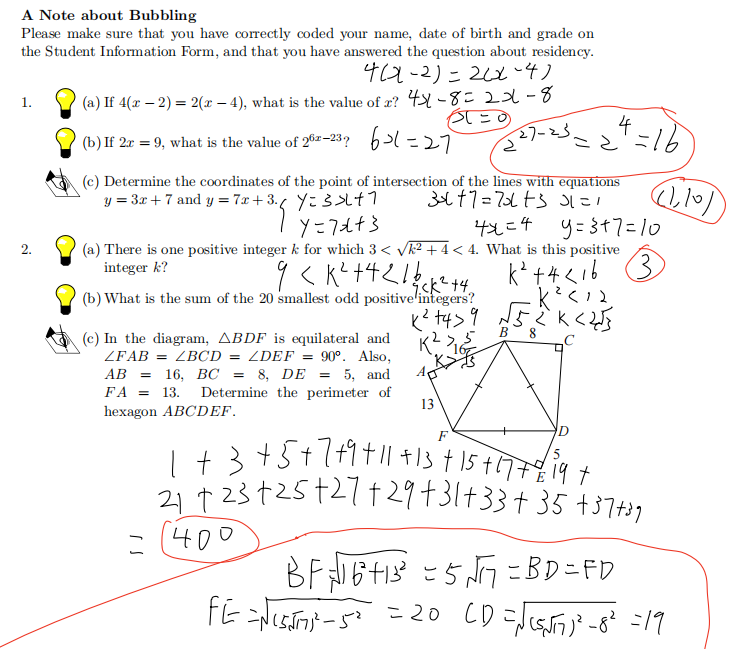 A Note about Bubbling
Please make sure that you have correctly coded your name, date of birth and grade on
the Student Information Form, and that you have answered the question about residency.
4(x-2) = 2(x-4)
1. (a) If 4(x − 2) = 2(x − 4), what is the value of x? 4x-8 = 2x-8
x=0
(b) If 2x = 9, what is the value of 2^{6x−23}? 6x=27 2^{27-23} = 2^4 = 16
(c) Determine the coordinates of the point of intersection of the lines with equations
y = 3x + 7 and y = 7x + 3. { y=3x+7 3x+7=7x+3 x=1 (1,10)
y=7x+3 4x=4 y=3+7=10
2. (a) There is one positive integer k for which 3 < √(k² + 4) < 4. What is this positive
integer k? 9 < k²+4<16 k²+4<16 3
9<k²+4 k²<12
(b) What is the sum of the 20 smallest odd positive integers?
k²+4>9 √5 < k < 2√3
(c) In the diagram, △BDF is equilateral and k²>5
∠FAB = ∠BCD = ∠DEF = 90°. Also, k>√5
AB = 16, BC = 8, DE = 5, and
FA = 13. Determine the perimeter of
hexagon ABCDEF.
B 8 C
16
A
13
F D
5
E
1 + 3 +5+7+9+11+13+15+17+19+
21+23+25+27+29+31+33+35+37+39
= 400
BF=√16²+13² = 5√17 = BD=FD
FE=√(5√17)²-5² = 20 CD=√(5√17)²-8² =19